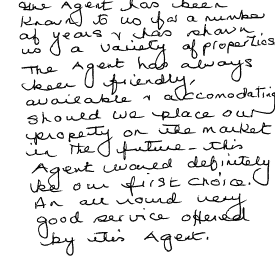 The Agent has been
known to us for a number
of years & has shown
us a variety of properties
The Agent has always
been friendly,
available & accomodating
should we place our
property on the market
in the future - this
Agent would definitely
be our first choice.
An all round very
good service offered
by this Agent.